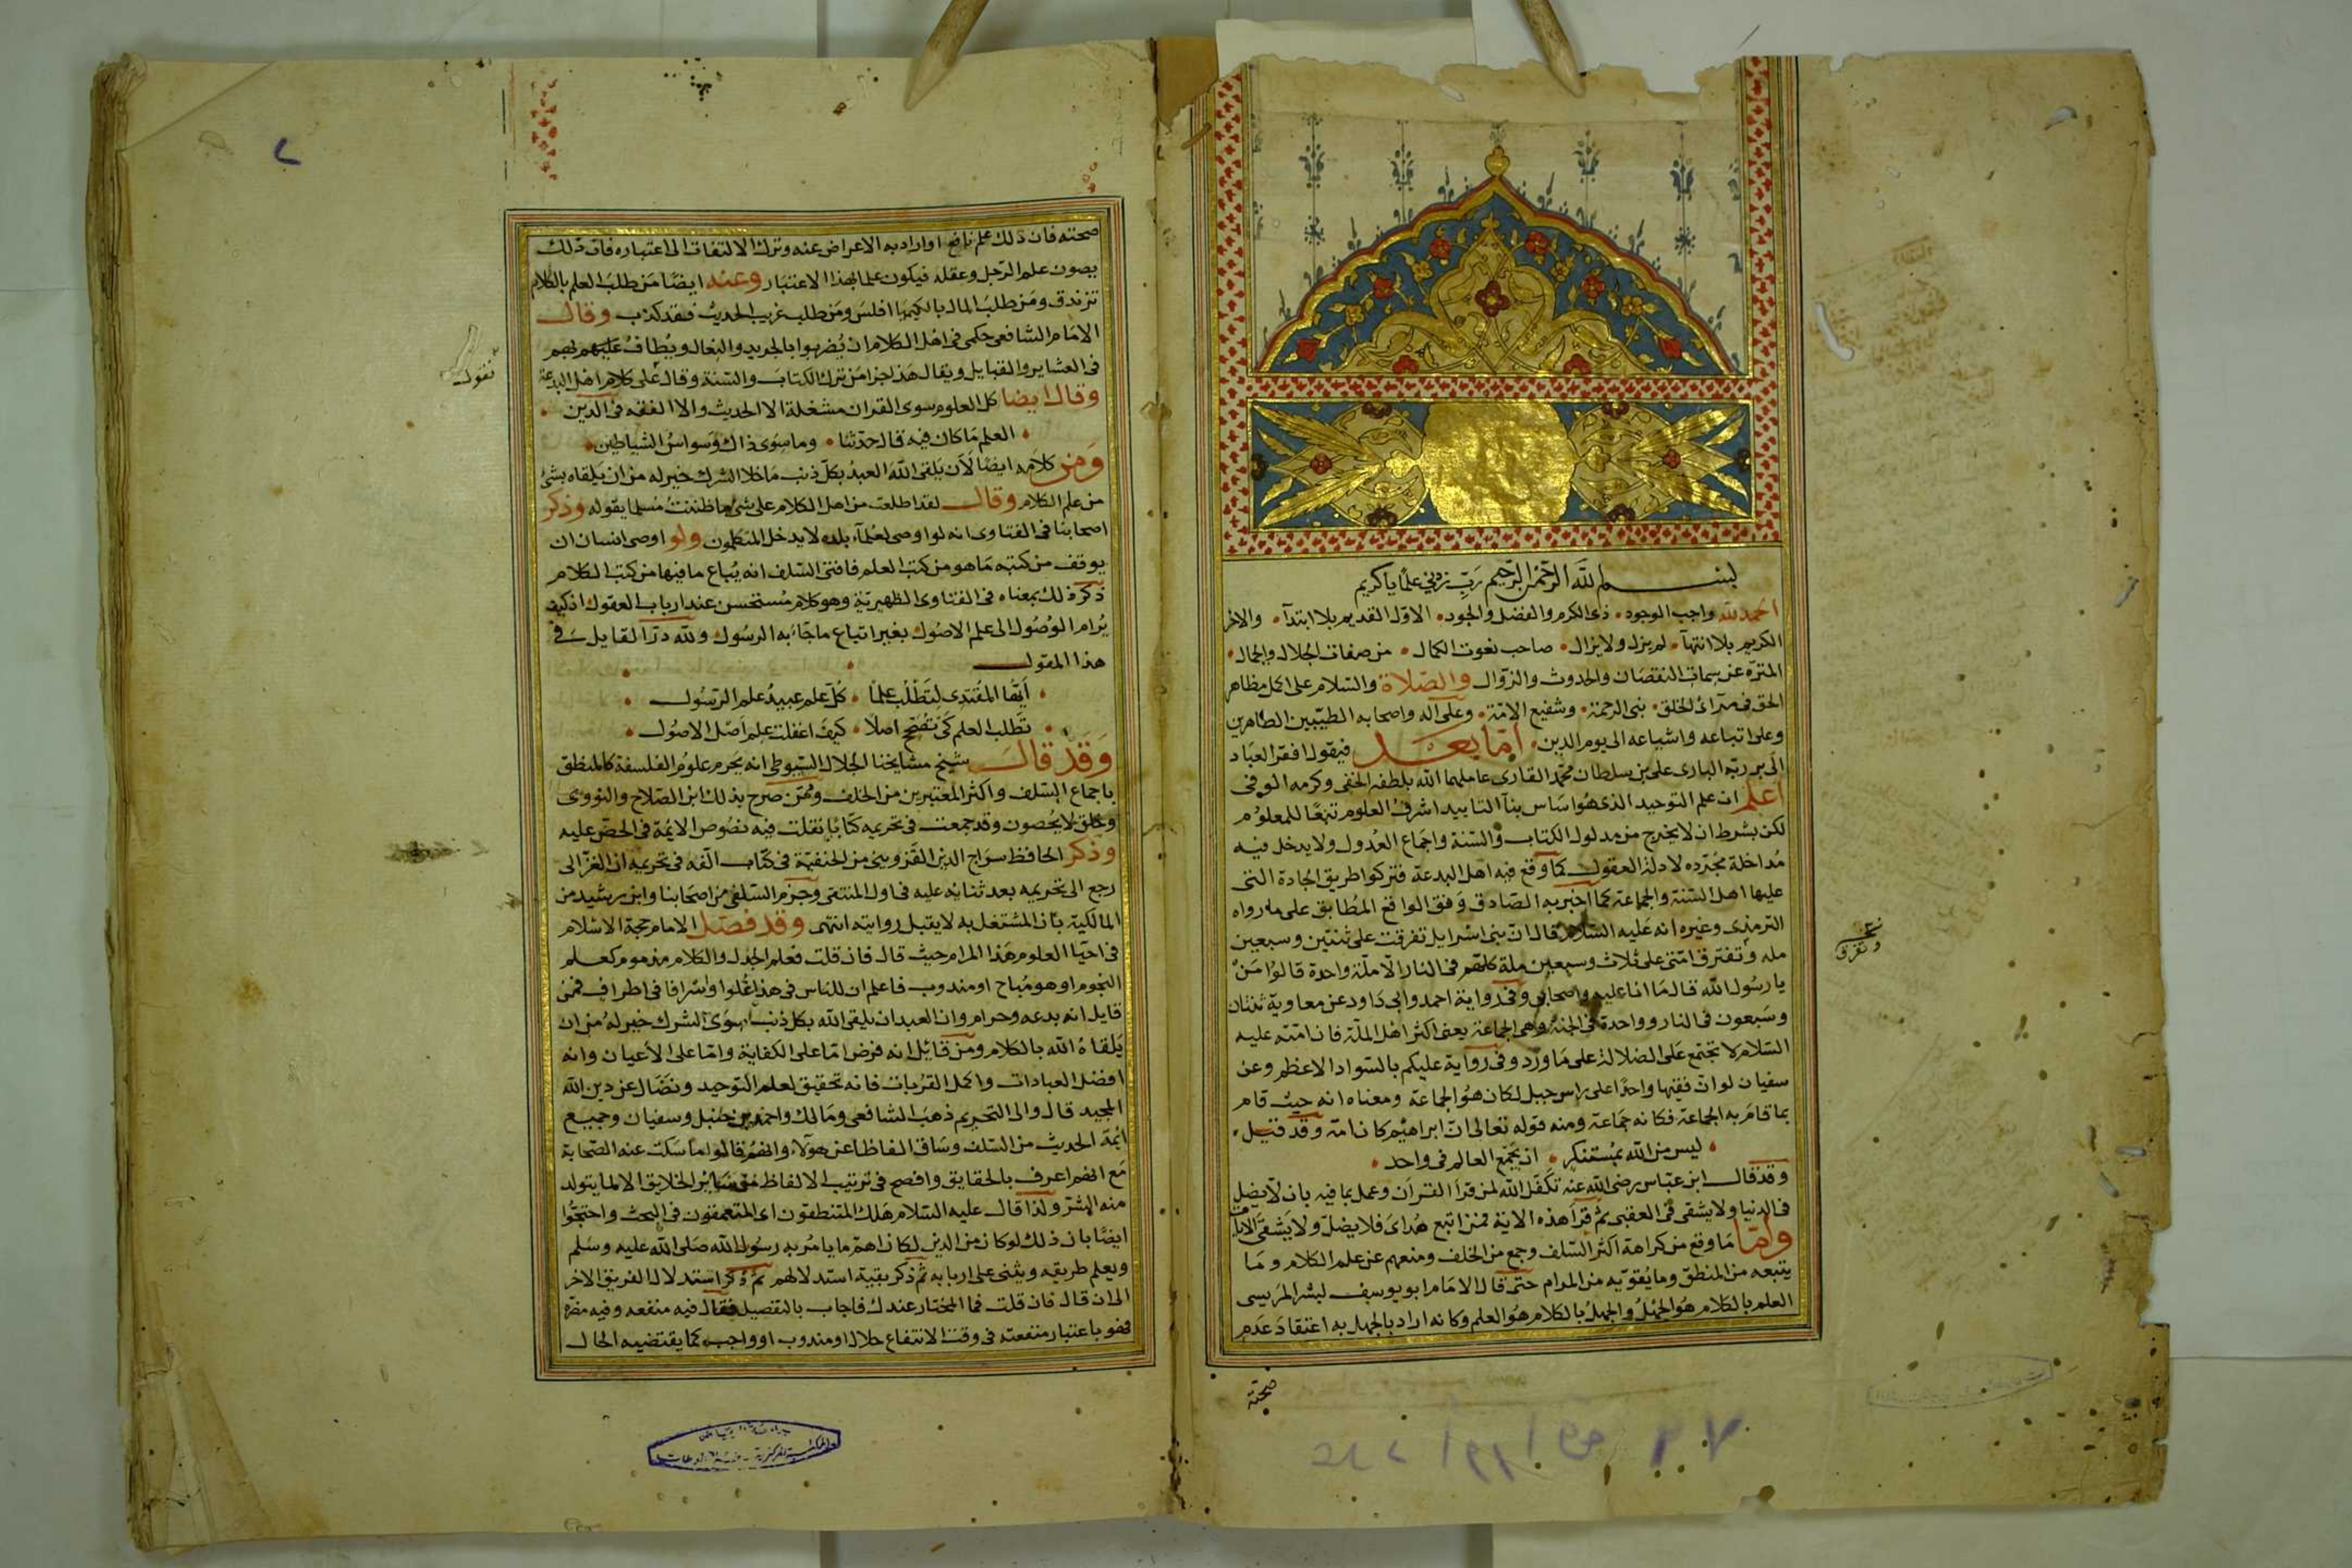 بسم الله الرحمن الرحيم رب زدني علما يا كريم
الحمد لله واجب الوجود • ذى الكرم والفضل والجود • الاول القديم بلا ابتدآء • والاخر
الكريم بلا انتهآء • لم يزل ولا يزال • صاحب نعوت الكمال • من صفات الجلال والجمال •
المنزه عن سمات النقصان والحدوث والزوال والصلاة والسلام على اكمل مظاهر
الحق فى مرآئ الخلق • نبى الرحمة • وشفيع الامة • وعلى آله واصحابه الطيبين الطاهرين
وعلى اتباعه واشياعه الى يوم الدين • اما بعد فيقول افقر العباد
الى بر ربه البارى على بن سلطان محمد القارى عاملهما الله بلطفه الخفى وكرمه الوفى
اعلم ان علم التوحيد الذى هو اساس بنآء التاييد اشرف العلوم تبعا للمعلوم
لكن بشرط ان لا يخرج من مدلول الكتاب والسنة واجماع العدول ولا يدخل فيه
مداخلة مجرده لادلة العقول كما وقع فيه اهل البدعة فتركوا طريق الجادة التى
عليها اهل السنة والجماعة كما اخبر به الصادق وفق الواقع المطابق على ما رواه
الترمذى وغيره انه عليه السلام قال ان بنى اسرايل تفرقت على ثنتين وسبعين
مله وتفترق امتى على ثلاث وسبعين ملة كلهم فى النار الا ملة واحدة قالوا من
يا رسول الله قال ما انا عليه واصحابى وفى رواية احمد وابى داود عن معاوية ثنتان
وسبعون فى النار وواحدة فى الجنة وهى الجماعة يعنى اكثر اهل الملة فان امته عليه
السلام لا تجتمع على الضلالة على ما ورد وفى رواية عليكم بالسواد الاعظم وعن
سفيان لو ان فقيها واحدا على راس جبل لكان هو الجماعة ومعناه انه حيث قام
بما قام به الجماعة فكانه جماعة ومنه قوله تعالى ان ابراهيم كان امة وقد قيل •
• ليس من الله بمستنكر • ان يجمع العالم فى واحد •
وقد قال ابن عباس رضى الله عنه تكفل الله لمن قرا القرآن وعمل بما فيه بان لا يضل
فى الدنيا ولا يشقى فى العقبى ثم قرا هذه الاية فمن اتبع هداى فلا يضل ولا يشقى الايات
واما ما وقع من كراهة اكثر السلف وجمع من الخلف ومنعهم عن علم الكلام وما
يتبعه من المنطق وما يقويه من المرام حتى قال الامام ابو يوسف لبشر المريسى
العلم بالكلام هو الجهل والجهل بالكلام هو العلم وكانه اراد بالجهل به اعتقاد عدم
صحته
نخ
وتفرق
صحته فان ذلك علم نافع او اراد به الاعراض عنه وترك الالتفات الى اعتباره فان ذلك
يصون علم الرجل وعقله فيكون علما بهذا الاعتبار وعنه ايضا من طلب العلم بالكلام
تزندق ومن طلب المال بالكيميا افلس ومن طلب غريب الحديث فقد كذب وقال
الامام الشافعى حكمى فى اهل الكلام ان يضربوا بالجريد والنعال ويطاف عليهم بهم
فى العشاير والقبايل ويقال هذا جزا من ترك الكتاب والسنة وقال على كلام اهل البدعة
وقال ايضا كل العلوم سوى القران مشغلة الا الحديث والا الفقه فى الدين •
• العلم ما كان فيه قال حدثنا • وما سوى ذاك وسواس الشياطين •
ومن كلامه ايضا لان يلقى الله العبد بكل ذنب ما خلا الشرك خير له من ان يلقاه بشئ
من علم الكلام وقال لقد اطلعت من اهل الكلام على شئ ما ظننت مسلما يقوله وذكر
اصحابنا فى الفتاوى انه لو اوصى لعلمآء بلده لا يدخل المتكلمون ولو اوصى انسان ان
يوقف من كتبه ما هو من كتب العلم فافتى السلف انه يباع ما فيها من كتب الكلام
ذكر ذلك بمعناه فى الفتاوى الظهيرية وهو كلام مستحسن عند ارباب العقول اذ كيف
يرام الوصول الى علم الاصول بغير اتباع ما جاء به الرسول ولله در القايل فى
هذا المقول
• ايها المقتدى لتطلب علما • كل علم عبيد علم الرسول •
• تطلب العلم كى تصحح اصلا • كيف اغفلت علم اصل الاصول •
وقد قال شيخ مشايخنا الجلال السيوطى انه يحرم علوم الفلسفة كالمنطق
باجماع السلف واكثر المعتبرين من الخلف وممن صرح بذلك ابن الصلاح والنووى
وخلق لا يحصون وقد جمعت فى تحريمه كتابا نقلت فيه نصوص الائمة فى الحض عليه
وذكر الحافظ سراج الدين القزوينى من الحنفية فى كتاب الفه فى تحريمه ان الغزالى
رجع الى تحريمه بعد ثنائه عليه فى اول المنتقى وجزم السلفى من اصحابنا وابن رشيد من
المالكية بان المشتغل به لا يقبل روايته انتهى وقد فصل الامام حجة الاسلام
فى احيآ العلوم هذا المرام حيث قال فان قلت فعلم الجدل والكلام مذموم كعلم
النجوم او هو مباح او مندوب فاعلم ان للناس فى هذا غلوا واسرافا فى اطراف فمن
قايل انه بدعه وحرام وان العبد ان يلقى الله بكل ذنب سوى الشرك خير له من ان
يلقاه الله بالكلام ومن قائل انه فرض اما على الكفاية واما على الاعيان وانه
افضل العبادات واكمل القربات فانه تحقيق لعلم التوحيد ونضال عن دين الله
المجيد قال والى التحريم ذهب الشافعى ومالك واحمد بن حنبل وسفيان وجميع
ائمة الحديث من السلف وساق الفاظا عن هولاء وانهم قالوا ما سكت عنه الصحابة
مع انهم اعرف بالحقايق وافصح فى ترتيب الالفاظ من سائر الخلايق الا لما يتولد
منه الشر ولذا قال عليه السلام هلك المتنطعون اى المتعمقون فى البحث واحتجوا
ايضا بان ذلك لو كان من الدين لكان اهم ما يامر به رسول الله صلى الله عليه وسلم
ويعلم طريقه ويثنى على اربابه ثم ذكر بقية استدلالهم ثم ذكر استدلال الفريق الاخر
الى ان قال فان قلت فما المختار عندك فاجاب بالتفصيل فقال فيه منفعه وفيه مضره
فهو باعتبار منفعته فى وقت الانتفاع حلال او مندوب او واجب كما يقتضيه الحال
٢